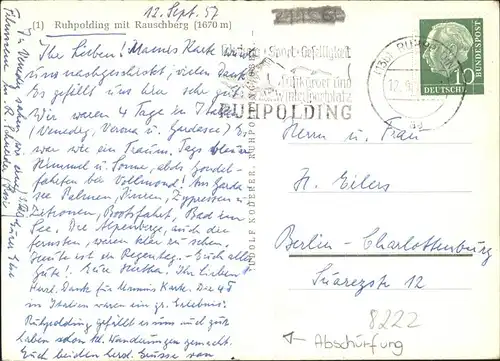 12. Sept. 57
(1) Ruhpolding mit Rauschberg (1670 m)
Ihr Lieben! Mamis Karte wurde
uns nachgeschickt, vielen Dank.
Es gefällt uns hier sehr gut.
Wir waren 4 Tage in Italien
(Venedig, Verona u. Gardasee) Es
war wie ein Traum. Tags blauer
Himmel u. Sonne, abds. Gondel-
fahrten bei Vollmond! Am Garda-
see Palmen, Pinien, Zypressen u.
Zitronen, Bootsfahrt, Bad im
See. Die Alpenberge, auch die
fernsten, waren klar zu sehen.
Heute ist ein Regentag. - Euch alles
Gute! Eure Hertha. Ihr Lieben!
Dank für Mamis Karte. Die 4 T.
in Italien waren ein gr. Erlebnis.
Ruhpolding gefällt es uns auch gut
haben schon Wanderungen gemacht.
Euch beiden herzl. Grüsse von
In Venedig sahen wir
RUHPOLDING
DEUTSCHE BUNDESPOST
10
Herrn u. Frau
H. Eilers
Berlin-Charlottenburg
Suarezstr 12
8222
← Abschürfung